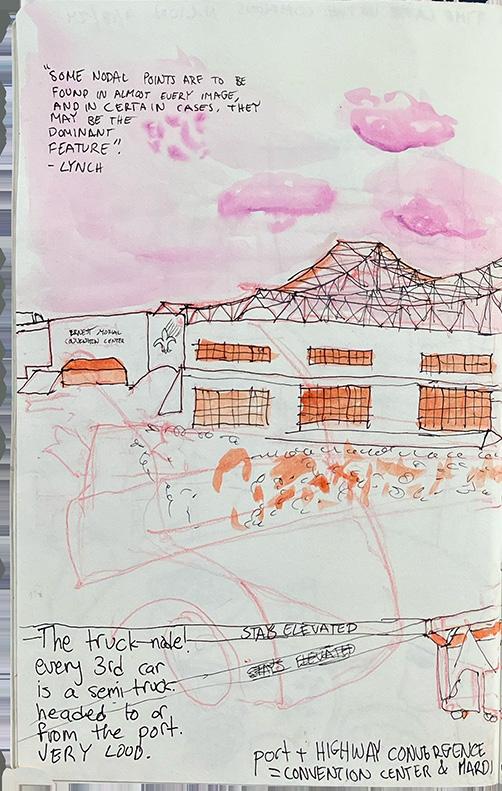 "SOME NODAL POINTS ARE TO BE
FOUND IN ALMOST EVERY IMAGE,
AND IN CERTAIN CASES, THEY
MAY BE THE
DOMINANT
FEATURE".
- LYNCH
ERNEST MORIAL
CONVENTION CENTER
STAYS ELEVATED
STAYS ELEVATED
The truck node!
every 3rd car
is a semi truck
headed to or
from the port.
VERY LOUD.
port + HIGHWAY CONVERGENCE
= CONVENTION CENTER & MARDI